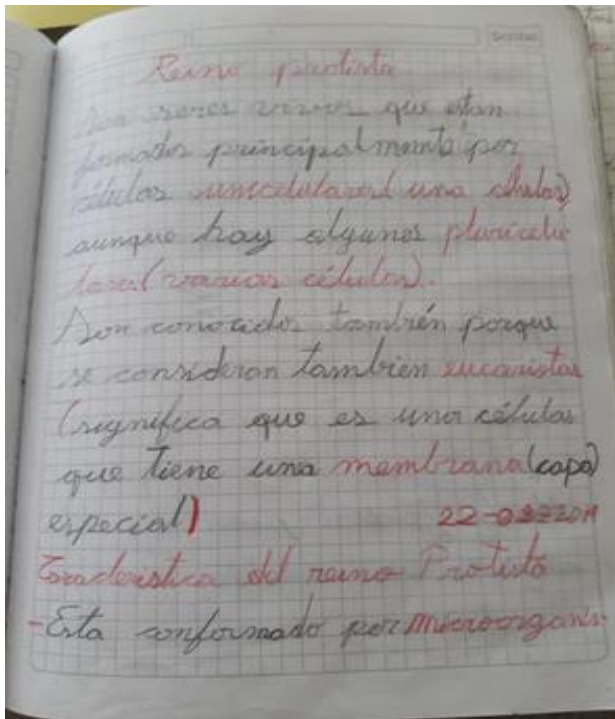 Reino protista
Son seres vivos que estan
formados principalmente por
células unicelulares( una células)
aunque hay algunos pluricelu
lares( varias células).
Son conocidos también porque
se consideran también eucaristas
(significa que es una células
que tiene una membrana (capa)
especial)
22-0
Caracteristica del reino Protista
-Esta conformado por microorganis-